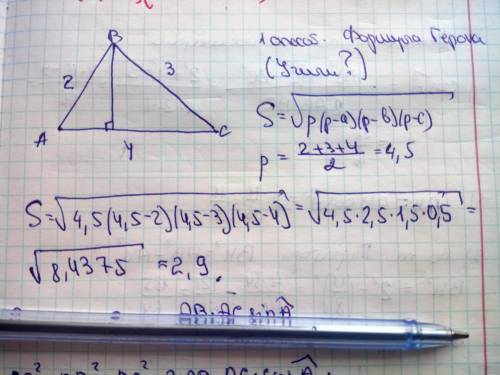 B
2
3
A
C
4
1 способ. Формула Герона
(Учили?)
S=√p(p-a)(p-b)(p-c)
p = 2+3+4/2 = 4,5
S=√4,5(4,5-2)(4,5-3)(4,5-4) = √4,5·2,5·1,5·0,5 =
√8,4375 = 2,9.
AB·AC sin A